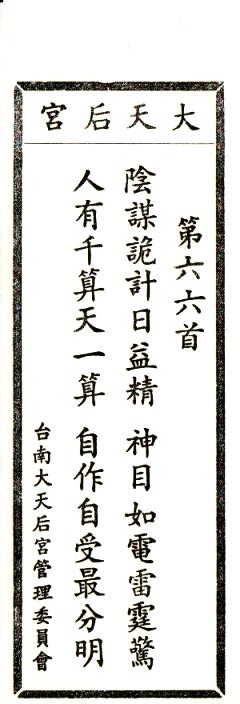 大天后宮
第六六首
陰謀詭計日益精 神目如電雷霆驚
人有千算天一算 自作自受最分明
台南大天后宮管理委員會